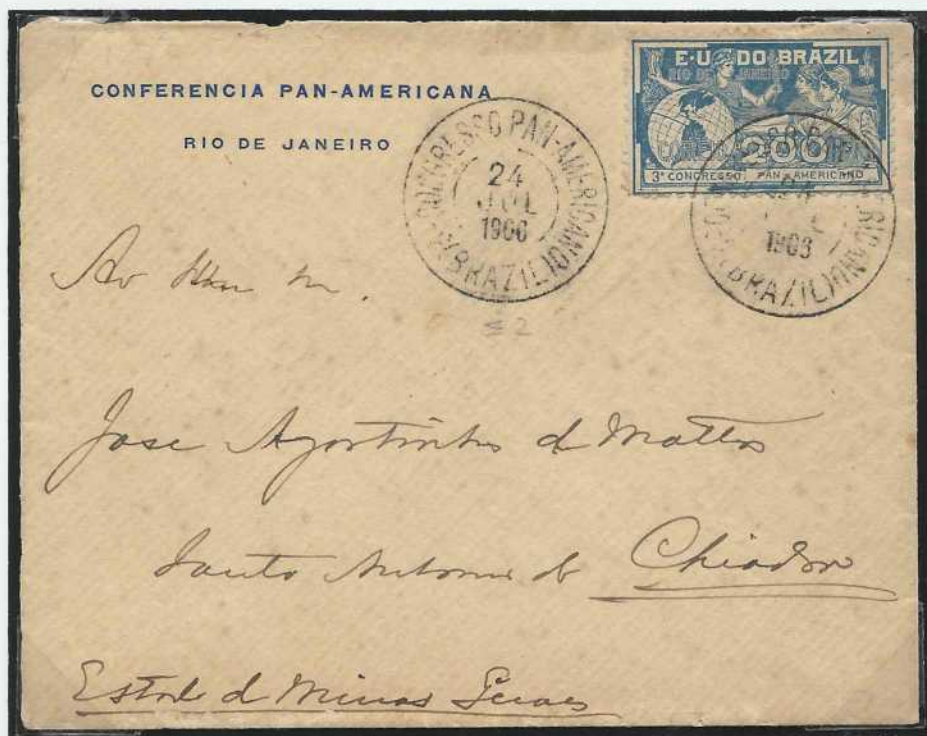 CONFERENCIA PAN-AMERICANA
RIO DE JANEIRO
E·U DO BRAZIL
RIO DE JANEIRO
200
3º CONGRESSO PAN-AMERICANO
CONGRESSO PAN-AMERICANO
24
JUL
1906
(BRAZIL)
1906
(BRAZIL)
2
Jose Agostinho d Mattos
Santo Antonio d Chiador
Estado d Minas Geraes